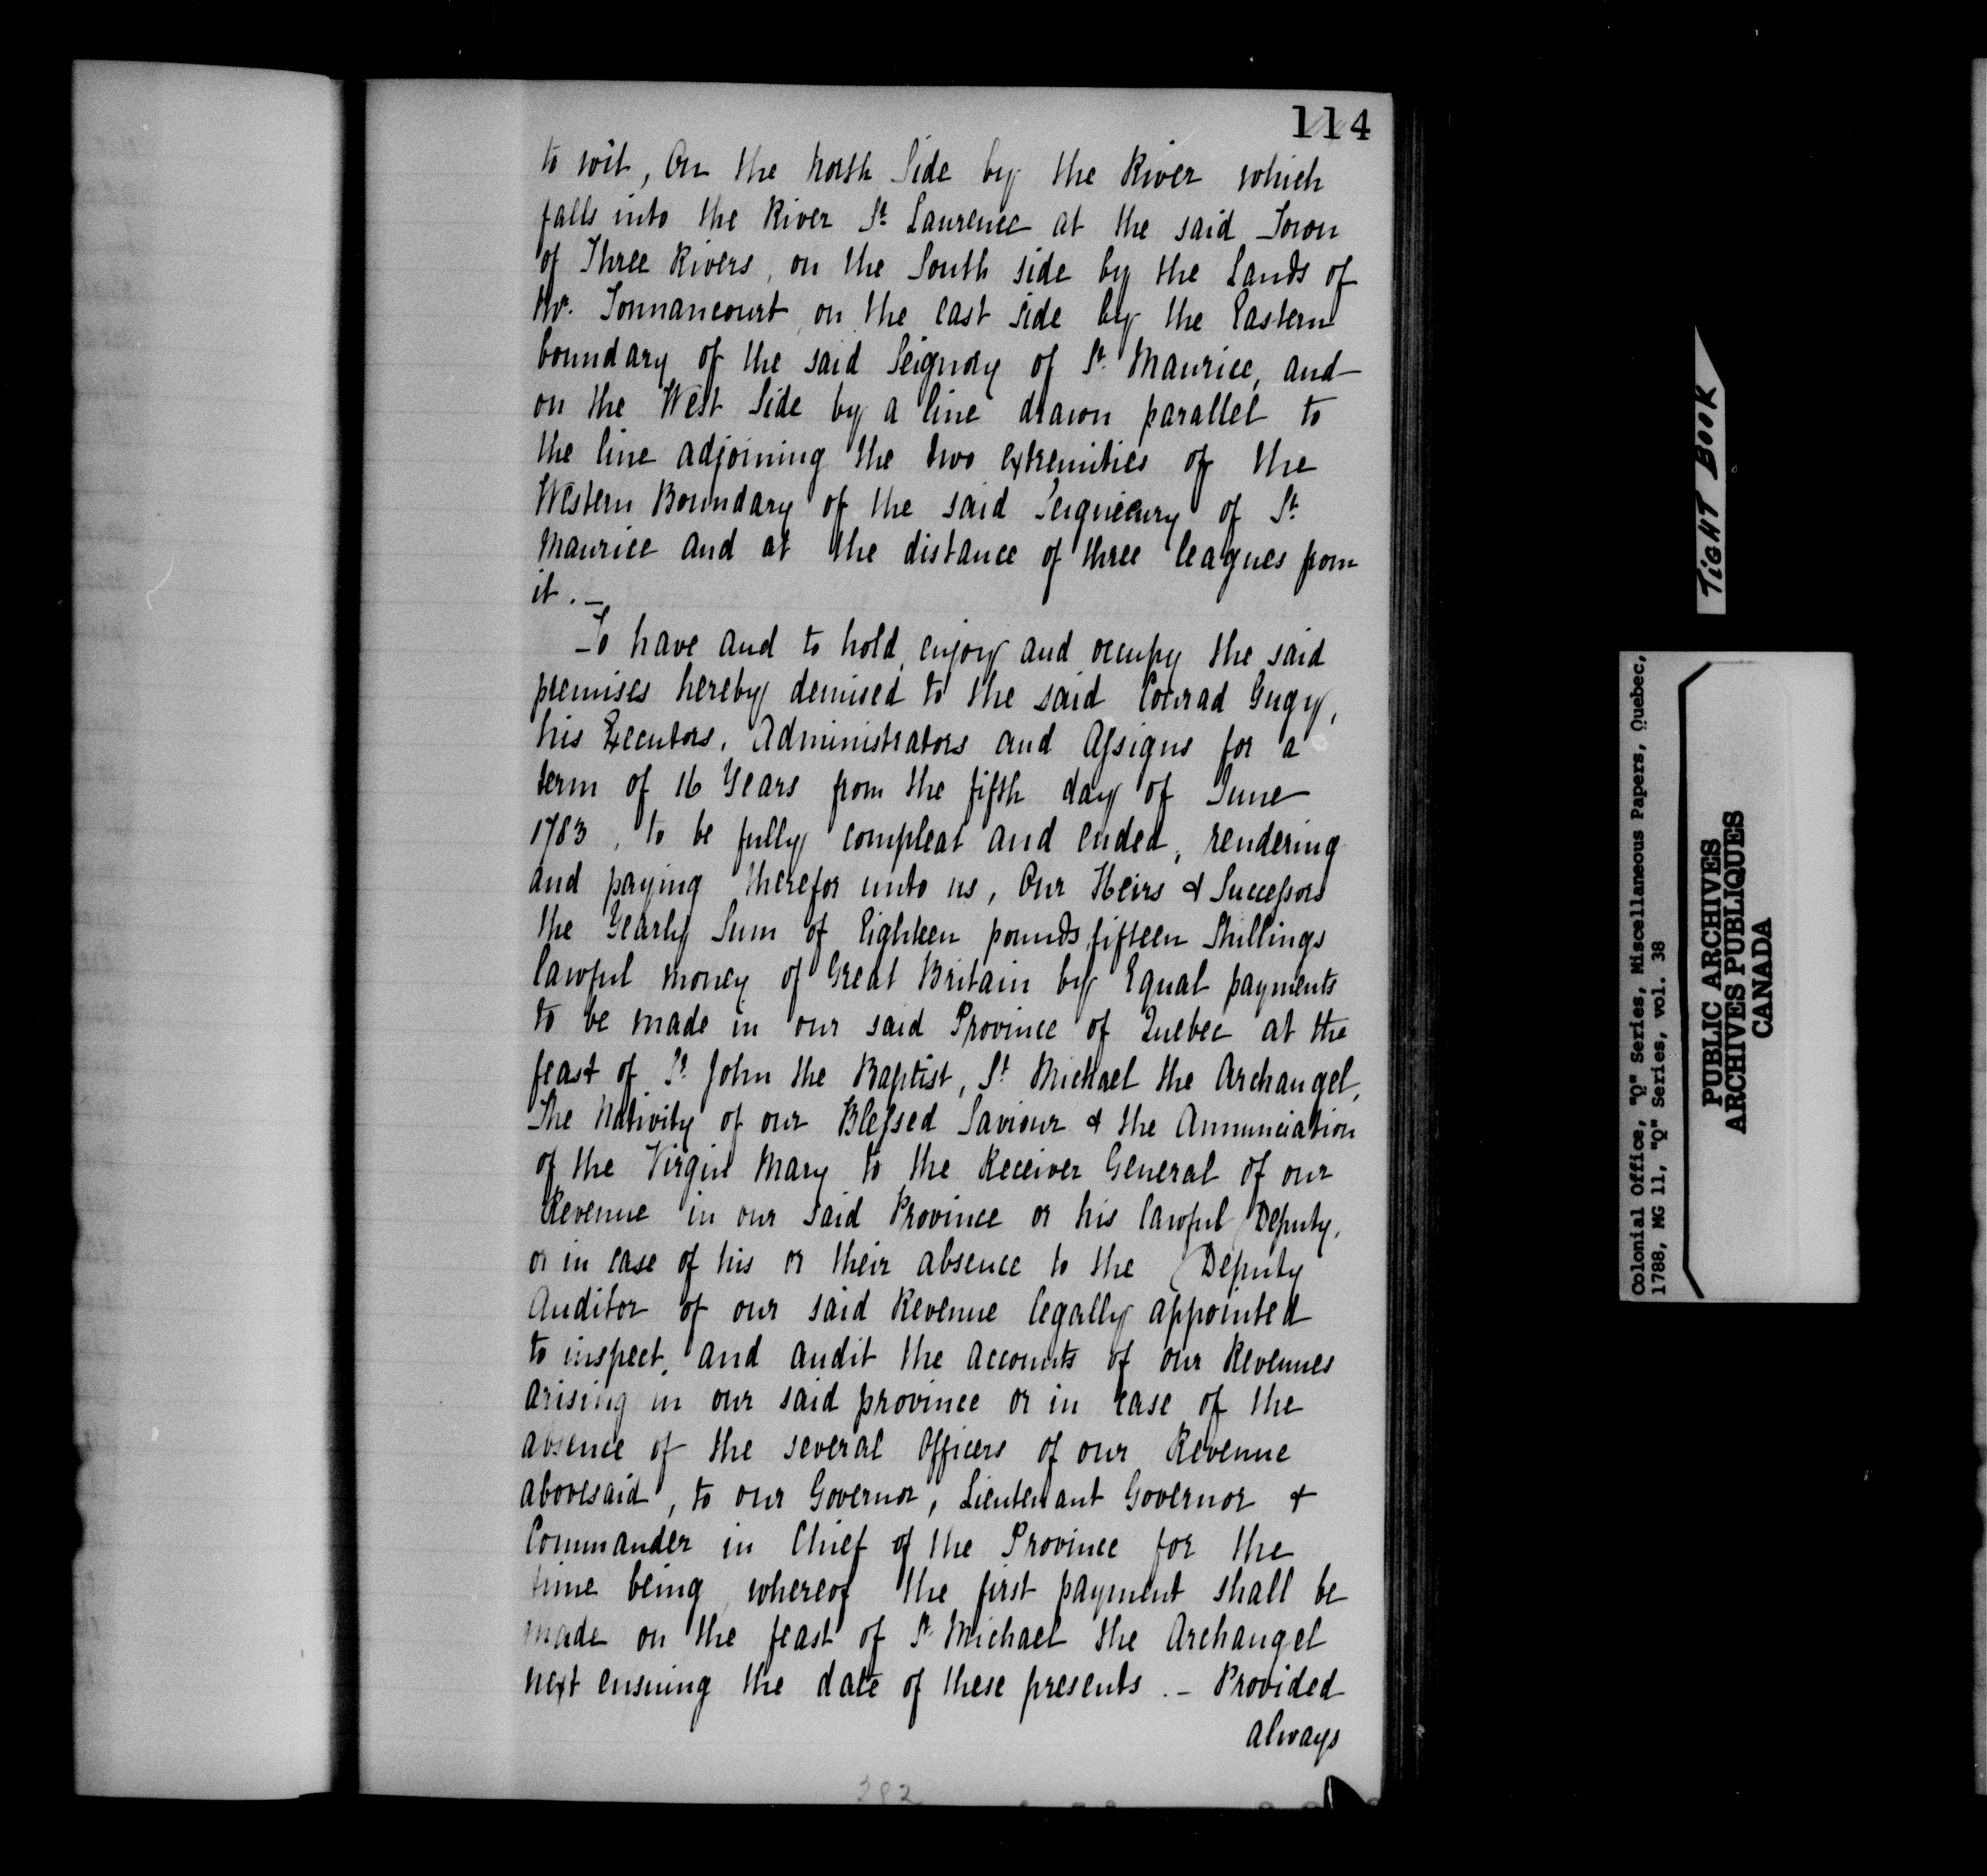 114
to wit, On the North Side by the River which
falls into the River St. Laurence at the said Town
of Three Rivers, on the South side by the Lands of
Mr. Tonnancourt, on the East side by the Eastern
boundary of the said Seignory of St. Maurice, and
on the West Side by a line drawn parallel to
the line adjoining the two extremities of the
Western Boundary of the said Seignieury of St.
Maurice and at the distance of three leagues from
it. —
To have and to hold, enjoy and occupy the said
premises hereby demised to the said Conrad Gugy,
his Executors, Administrators and Assigns for a
term of 16 Years from the fifth day of June
1783, to be fully compleat and ended, rendering
and paying therefor unto us, Our Heirs & Successors
the Yearly Sum of Eighteen pounds, fifteen Shillings
lawful money of Great Britain by Equal payments
to be made in our said Province of Quebec at the
feast of St. John the Baptist, St. Michael the Archangel,
The Nativity of our Blessed Saviour & the Annunciation
of the Virgin Mary to the Receiver General of our
Revenue in our said Province or his lawful Deputy,
or in case of his or their absence to the Deputy
Auditor of our said Revenue legally appointed
to inspect, and audit the accounts of our Revenues
arising in our said province or in case of the
absence of the several Officers of our Revenue
abovesaid, to our Governor, Lieutenant Governor &
Commander in Chief of the Province for the
time being, whereof the first payment shall be
made on the feast of St. Michael the Archangel
next ensuing the date of these presents. — Provided
always
392
TIGHT BOOK
Colonial Office, "Q" Series, Miscellaneous Papers, Quebec,
1788, MG 11, "Q" Series, vol. 38
PUBLIC ARCHIVES
ARCHIVES PUBLIQUES
CANADA